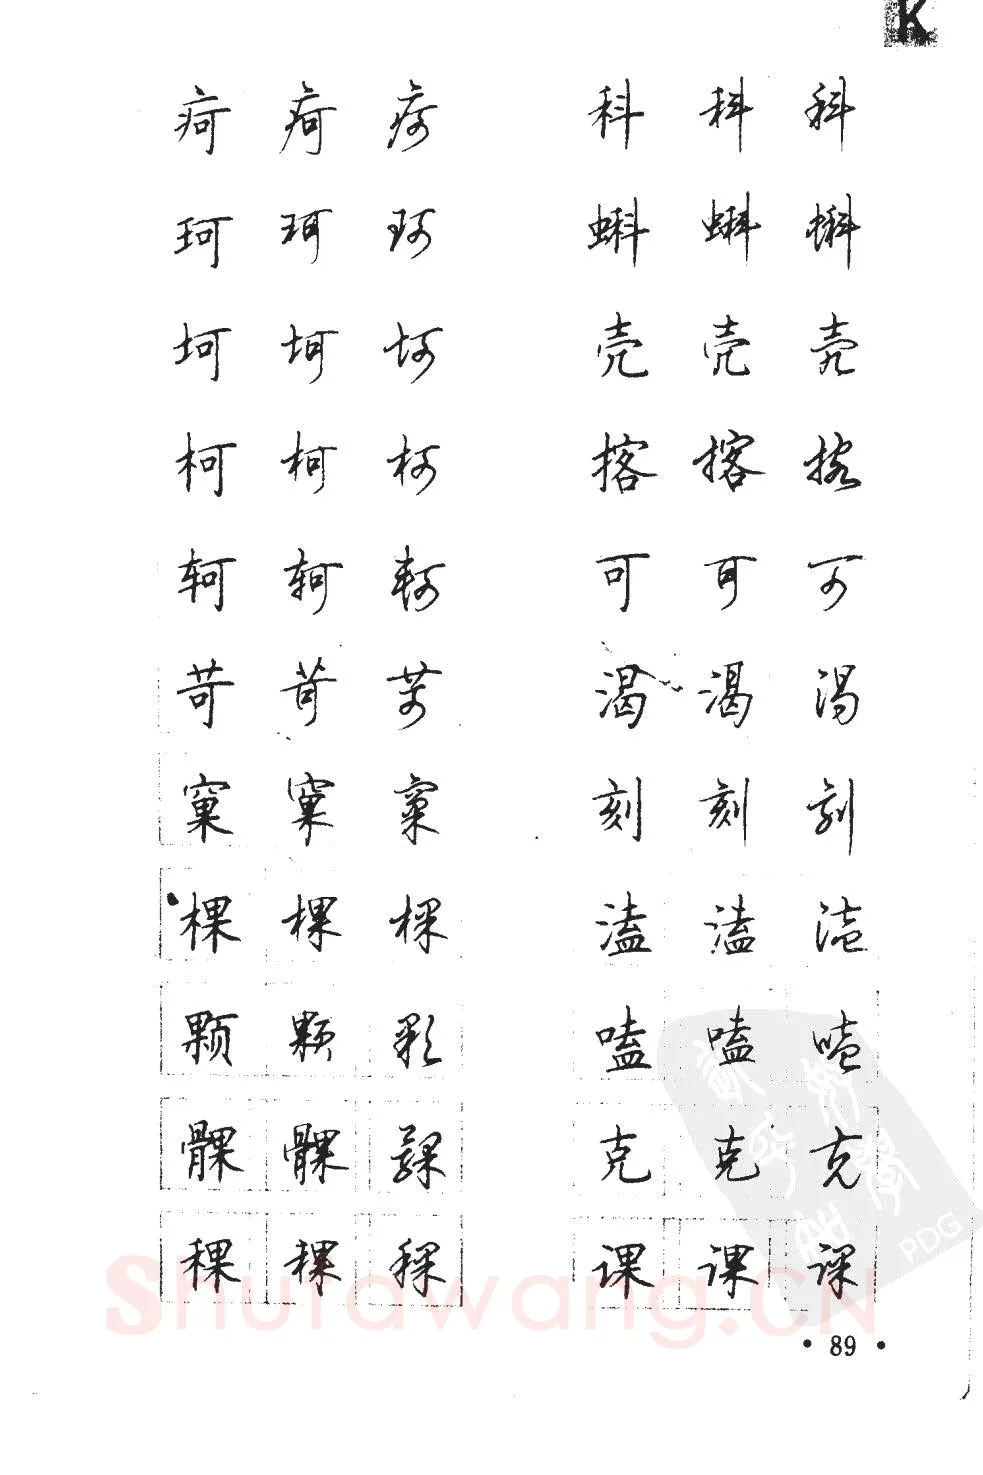 K
疴 疴 疴 科 科 科
珂 珂 珂 蝌 蝌 蝌
坷 坷 坷 壳 壳 壳
柯 柯 柯 揢 揢 揢
轲 轲 轲 可 可 可
苛 苛 苛 渴 渴 渴
窠 窠 窠 刻 刻 刻
棵 棵 棵 溘 溘 溘
颗 颗 颗 嗑 嗑 嗑
髁 髁 髁 克 克 克
稞 稞 稞 课 课 课
Shufawang.CN
PDG
• 89 •